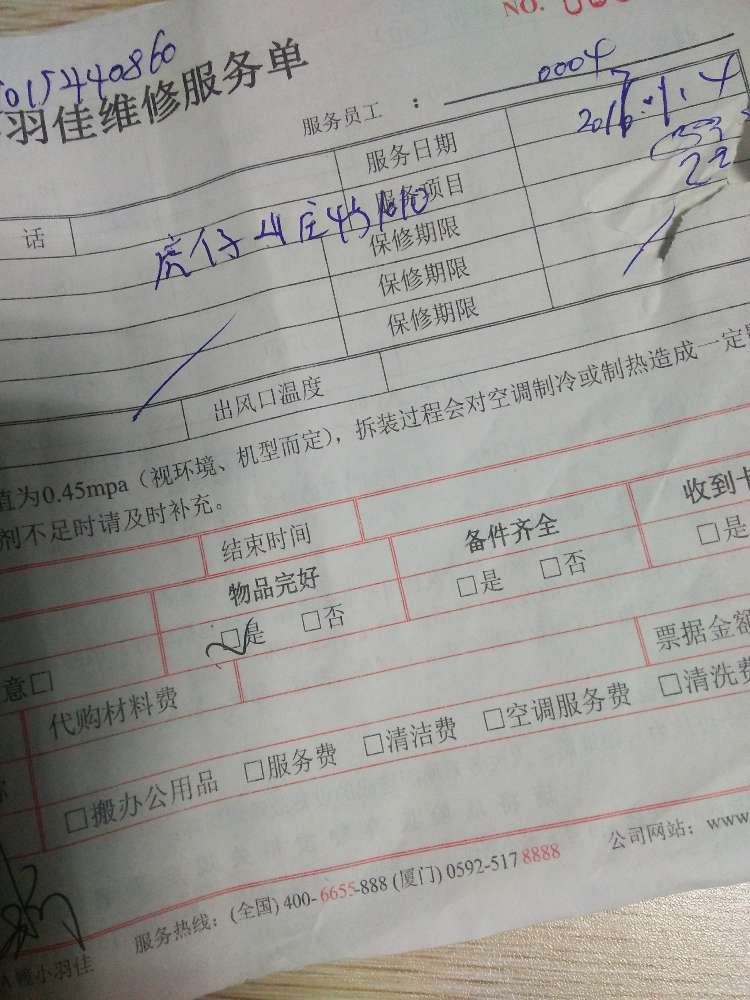 NO.
015440860
羽佳维修服务单
服务员工 : 0004
服务日期
话
服务项目
虎仔山庄
保修期限
保修期限
保修期限
出风口温度
值为0.45mpa（视环境、机型而定），拆装过程会对空调制冷或制热造成一定
剂不足时请及时补充。
结束时间
物品完好 备件齐全 收到卡
□是 □否 □是 □否 □是
意□
代购材料费
票据金额
□搬办公用品 □服务费 □清洁费 □空调服务费 □清洗费
服务热线：(全国) 400-6655-888 (厦门) 0592-517 8888 公司网站：www
小羽佳